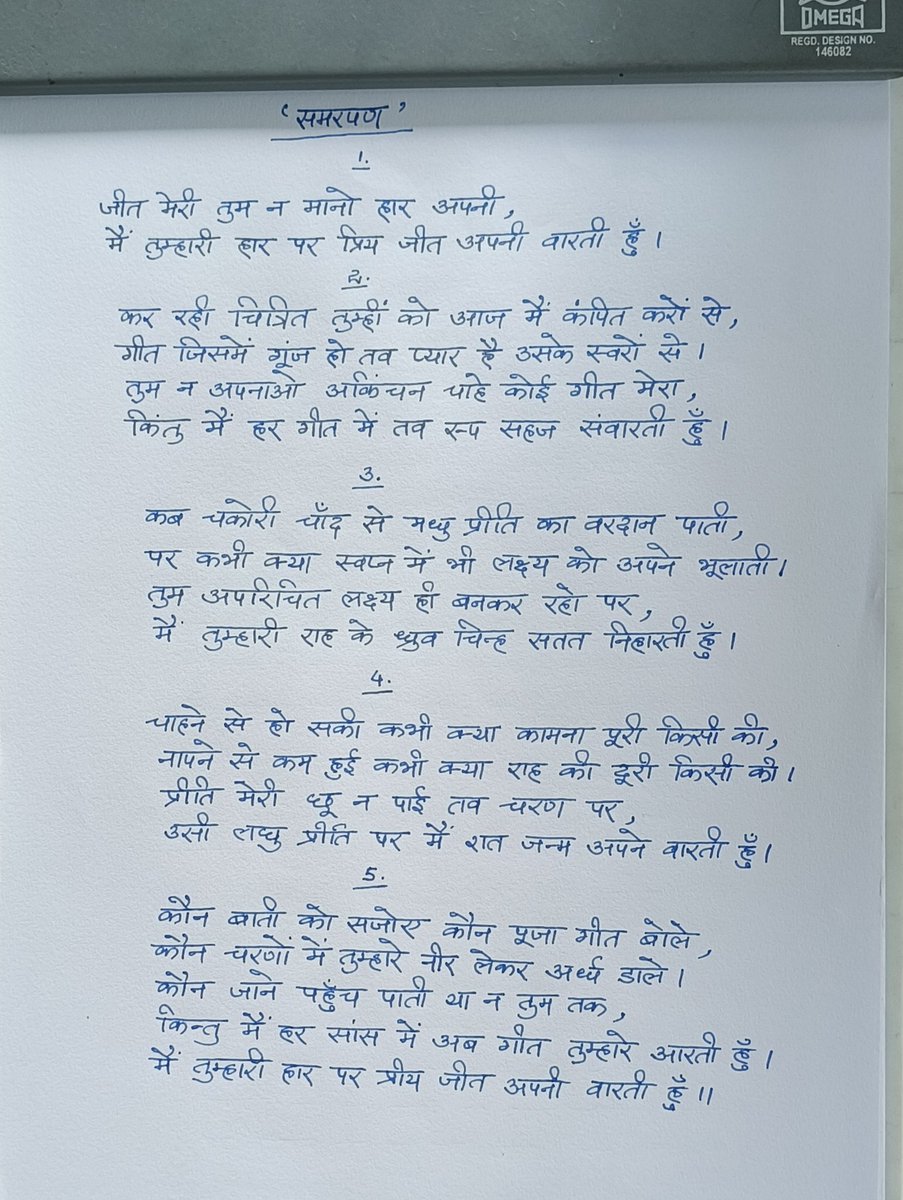 OMEGA
REGD. DESIGN NO.
146082
‘समरपण’
1.
जीत मेरी तुम न मानो हार अपनी,
मैं तुम्हारी हार पर प्रिय जीत अपनी वारती हुँ।
2.
कर रही चित्रित तुम्हीं को आज मैं कंपित करों से,
गीत जिसमें गूंज हो तव प्यार है उसके स्वरों से।
तुम न अपनाओ अकिंचन चाहे कोई गीत मेरा,
किंतु मैं हर गीत में तव रूप सहज संवारती हुँ।
3.
कब चकोरी चाँद से मधु प्रीति का वरदान पाती,
पर कभी क्या स्वप्न में भी लक्ष्य को अपने भूलाती।
तुम अपरिचित लक्ष्य ही बनकर रहो पर,
मैं तुम्हारी राह के ध्रुव चिन्ह सतत निहारती हुँ।
4.
चाहने से हो सकी कभी क्या कामना पूरी किसी की,
नापने से कम हुई कभी क्या राह की दूरी किसी की।
प्रीति मेरी छू न पाई तव चरण पर,
उसी लघु प्रीति पर मैं शत जन्म अपने वारती हुँ।
5.
कौन बाती को सजोए कौन पूजा गीत बोले,
कौन चरणों में तुम्हारे नीर लेकर अर्घ्य डाले।
कौन जाने पहुँच पाती या न तुम तक,
किन्तु मैं हर सांस में अब गीत तुम्हारे आरती हुँ।
मैं तुम्हारी हार पर प्रीय जीत अपनी वारती हुँ॥